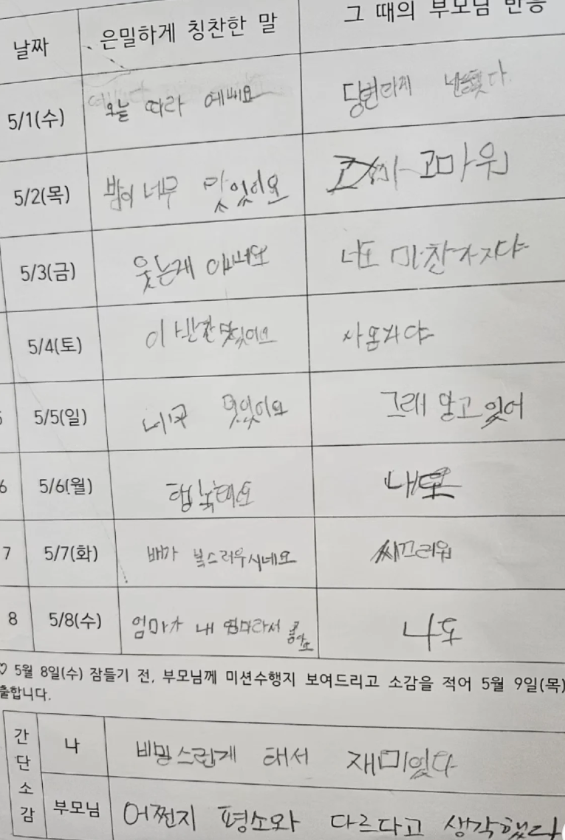 날짜 은밀하게 칭찬한 말 그 때의 부모님 반응
5/1(수) 오늘 따라 예뻐요 당연하게
5/2(목) 밥이 너무 맛있어요 고마워
5/3(금) 웃는게 너도 마찬가지야
5/4(토) 이 반찬 맛있어요 사온거야
5/5(일) 그래 알고 있어
6 5/6(월) 나도
7 5/7(화) 배가 시네요 씨끄러워
8 5/8(수) 엄마가 내 엄마라서 좋아요 나도
♡ 5월 8일(수) 잠들기 전, 부모님께 미션수행지 보여드리고 소감을 적어 5월 9일(목)
출합니다.
간단소감
나 비밀스럽게 해서 재미있다
부모님 어쩐지 평소와 다르다고 생각했다